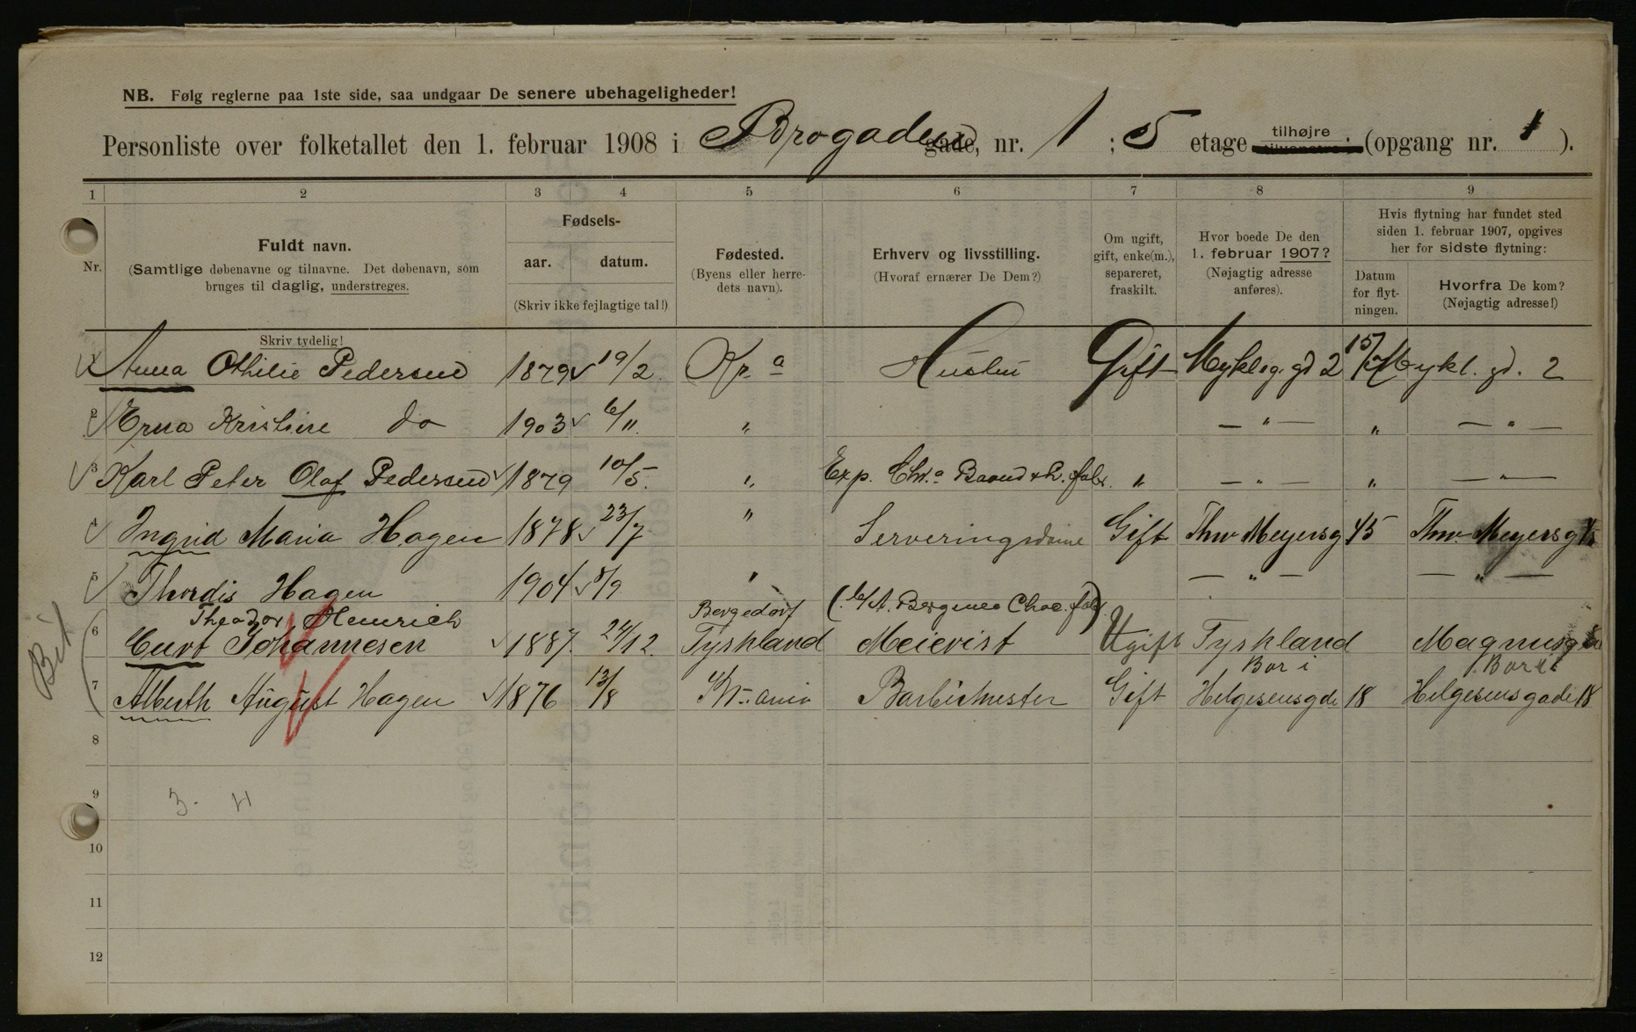 NB. Følg reglerne paa 1ste side, saa undgaar De senere ubehageligheder!
Personliste over folketallet den 1. februar 1908 i Brogaden gade, nr. 1 ; 5 etage tilhøjre tilvenstre; (opgang nr. 1 ).
1 2 3 4 5 6 7 8 9
Nr.
Fuldt navn.
(Samtlige døbenavne og tilnavne. Det døbenavn, som
bruges til daglig, understreges.
Skriv tydelig!
Fødsels-
aar. datum.
(Skriv ikke fejlagtige tal!)
Fødested.
(Byens eller herre-
dets navn).
Erhverv og livsstilling.
(Hvoraf ernærer De Dem?)
Om ugift,
gift, enke(m.),
separeret,
fraskilt.
Hvor boede De den
1. februar 1907?
(Nøjagtig adresse
anføres).
Hvis flytning har fundet sted
siden 1. februar 1907, opgives
her for sidste flytning:
Datum
for flyt-
ningen.
Hvorfra De kom?
(Nøjagtig adresse!)
Anna Othilie Pedersen 1879 19/2 Kr a Hustru Gift Mykleg. gd 2 15/ Mykl. gd. 2
2 Erna Kristine do 1903 6/11 " — " — " — " —
3 Karl Peter Olaf Pedersen 1879 10/5. " Exp. Chr.a Baand & L. fabr. " — " — " — " —
4 Ingrid Maria Hagen 1878 23/7 " Serveringsdame Gift Thv Meyersg 45 Thv. Meyersg 45
5 Thordis Hagen 1904 8/9 " — " — — " —
Theodor Heinrich Bergedorf (A. Bergenes Choc. fabr)
6 Curt Johannesen 1887. 24/12. Tyskland Meierist Ugift Tyskland Magnusg
Bor i Bor i
7 Alberth August Hagen 1876 13/8 Kr.ania Barbermester Gift Helgesensgde 18 Helgesensgade 18
8
9
3. H
10
11
12